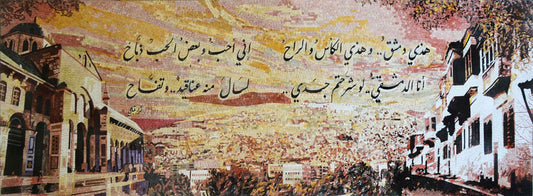 هذي دمشق.. وهذي الكأس والراح    اني أحب وبعض الحب ذباح
أنا الدمشقي.. لو شرحتم جسدي..    لسال منه عناقيد.. وتفاح